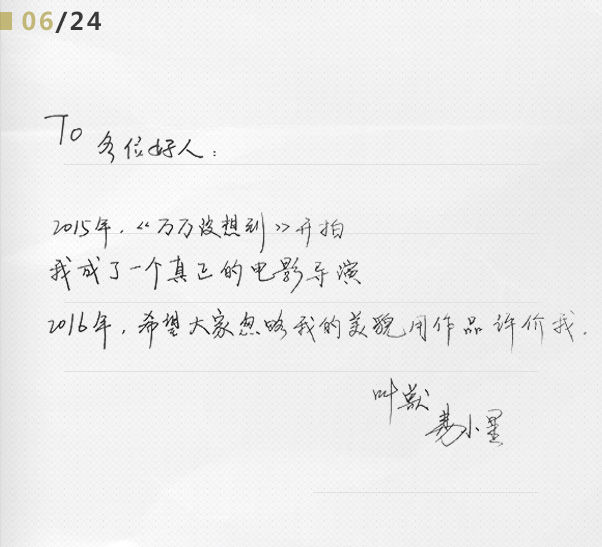 06/24
To 各位好人:
2015年，《万万没想到》开拍
我成了一个真正的电影导演
2016年，希望大家忽略我的美貌用作品评价我.
叫兽
易小星